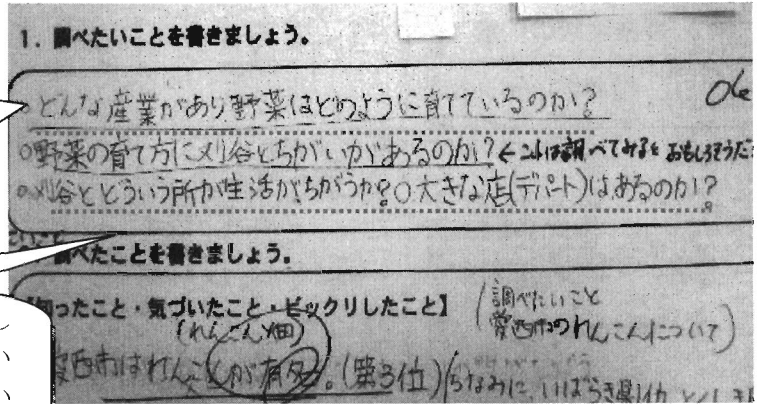 1. 調べたいことを書きましょう。
○どんな産業があり野菜はどのように育てているのか? Ok
○野菜の育て方に刈谷とちがいがあるのか?←これは調べてみるとおもしろそうだ
○刈谷とどういう所が生活がちがうか?○大きな店(デパート)はあるのか?
調べたことを書きましょう。
知ったこと・気づいたこと・ビックリしたこと】
(調べたいこと
愛西市のれんこんについて)
(れんこん畑)
愛西市はれんこんが有名。(第3位)ちなみに、いばらき県1位